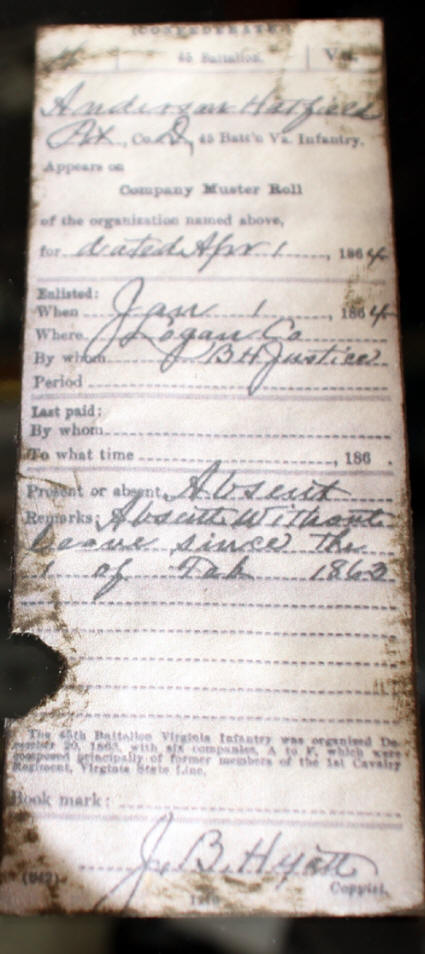 (CONFEDERATE)
45 Battalion. Va.
Anderson Hatfield
Pvt., Co. D, 45 Batt'n Va. Infantry.
Appears on
Company Muster Roll
of the organization named above,
for dated Apr 1, 1864.
Enlisted:
When Jan 1, 1864
Where Logan Co
By whom B H Justice
Period
Last paid:
By whom
To what time, 186 .
Present or absent, Absent
Remarks: Absent Without
leave since the
1 of 1863
The 45th Battalion Virginia Infantry was organized De-
cember 20, 1863, with six companies, A to F, which were
composed principally of former members of the 1st Cavalry
Regiment, Virginia State Line.
Book mark:
J. B. Hyatt
(642) Copyist.